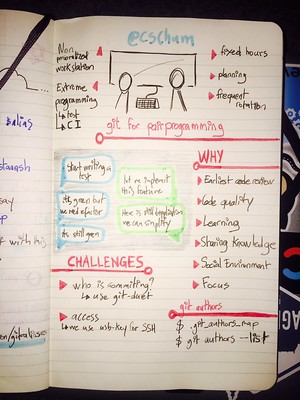 @cscham
Non
workstation
Extreme
programming
↳ test
↳ CI
fixed hours
planning
frequent
rotation
git for pairprogramming
start writing a
test
let me implement
this feature
it's green but
we need refactor
Here is still duplication
we can simplify
it's still green
WHY
Earliest code review
Code quality
Learning
Sharing knowledge
Social Environment
Focus
CHALLENGES
who is commiting?
↳ use git-duet
access
↳ we use usb-key for SSH
git authors
$ .git_authors_map
$ git authors --list
alias
say
with this